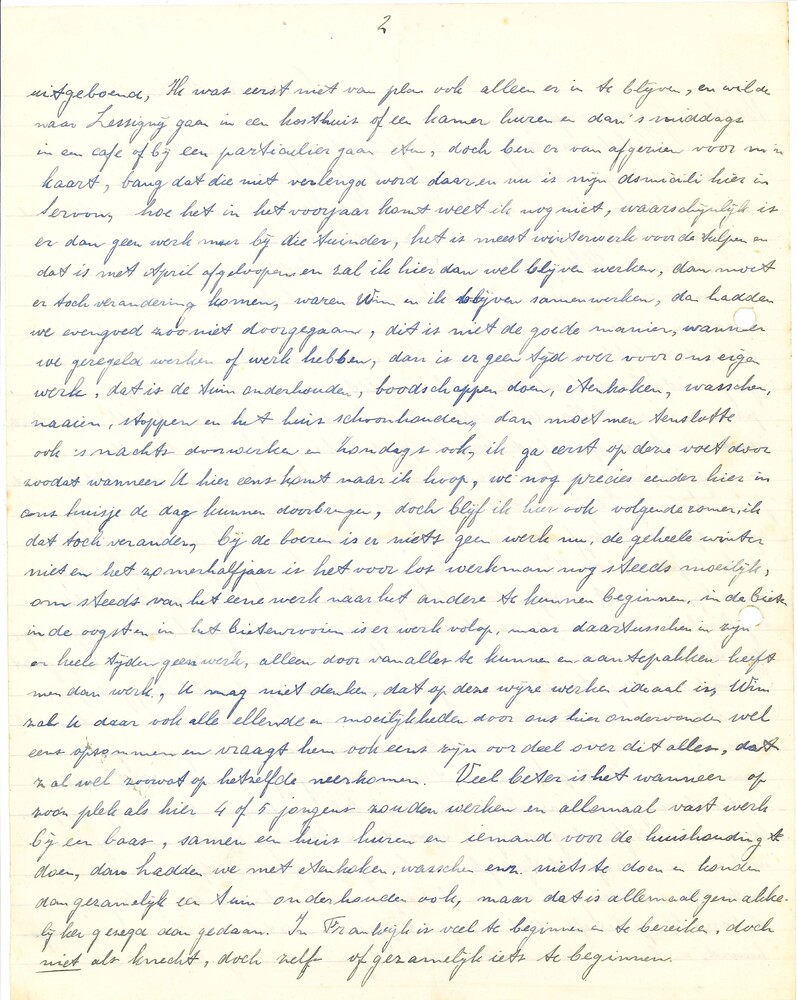 2
uitgeboend, Ik was eerst niet van plan ook alleen er in te blijven, en wilde
naar Lessigny gaan in een kosthuis of een kamer huren en dan 's middags
in een cafe of bij een particulier gaan eten, doch ben er van afgezien voor mijn
kaart, bang dat die niet verlengd word daar, en nu is mijn domicili hier in
Servon, hoe het in het voorjaar komt weet ik nog niet, waarschijnlijk is
er dan geen werk meer bij die tuinder, het is meest winterwerk voor de tulpen en
dat is met April afgeloopen en zal ik hier dan wel blijven werken, dan moet
er toch verandering komen, waren Wim en ik blijven samenwerken, dan hadden
we evengoed zoo niet doorgegaan, dit is niet de goede manier, wanneer
we geregeld werken of werk hebben, dan is er geen tijd over voor ons eigen
werk, dat is de tuin onderhouden, boodschappen doen, etenkoken, wasschen,
naaien, stoppen en het huis schoonhouden, dan moet men tenslotte
ook 's nachts doorwerken en Zondags ook, ik ga eerst op deze voet door
zoodat wanneer U hier eens komt naar ik hoop, we nog precies eender hier in
ons huisje de dag kunnen doorbrengen, doch blijf ik hier ook volgende zomer, ik
dat toch verander, bij de boeren is er niets geen werk nu, de geheele winter
niet en het zomerhalfjaar is het voor los werkman nog steeds moeilijk,
om steeds van het eene werk naar het andere te kunnen beginnen, in de bieten
in de oogst en in het bietenrooien is er werk volop, maar daartusschen in zijn
er heele tijden geen werk, alleen door van alles te kunnen en aan te pakken heeft
men dan werk, U mag niet denken, dat op deze wijze werken ideaal is, Wim
zal U daar ook alle ellende en moeilijkheden door ons hier ondervonden wel
eens opsommen en vraagt hem ook eens zijn oordeel over dit alles, dat
zal wel zoowat op hetzelfde neerkomen. Veel beter is het wanneer op
zoon plek als hier 4 of 5 jongens zouden werken en allemaal vast werk
bij een baas, samen een huis huren en iemand voor de huishouding te
doen, dan hadden we met etenkoken, wasschen enz. niets te doen en konden
dan gezamelijk een tuin onderhouden ook, maar dat is allemaal gemakke-
lijker gezegd dan gedaan. In Frankrijk is veel te beginnen en te bereiken, doch
niet als knecht, doch zelf of gezamelijk iets te beginnen.